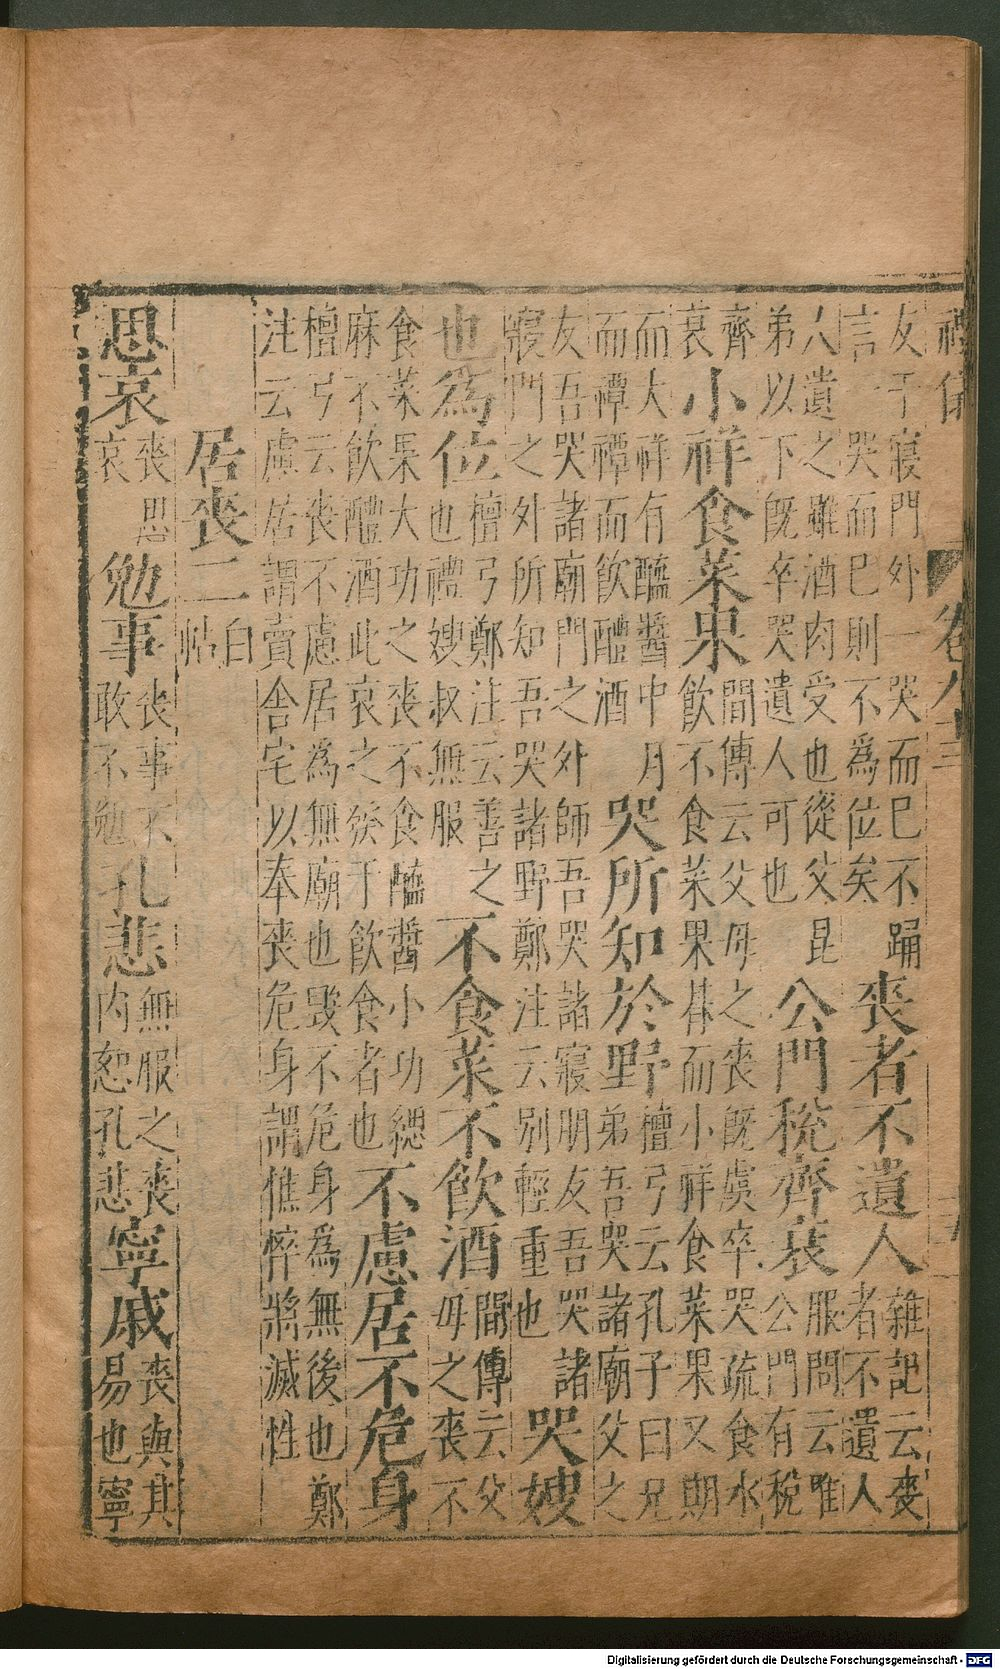 禮儀 卷八十三
友于寢門外一哭而巳不踊言一哭而巳則不爲位矣喪者不遺人雜記云喪者不遺人
人遺之雖酒肉受也從父昆弟以下既卒哭遺人可也公門稅齊衰服問云唯公門有稅
齊衰小祥食菜果間傳云父母之喪既虞卒哭疏食水飲不食菜果朞而小祥食菜果又期
而大祥有醯醬中月而禫禫而飲醴酒哭所知於野檀弓云孔子曰兄弟吾哭諸廟父之
友吾哭諸廟門之外師吾哭諸寢朋友吾哭諸寢門之外所知吾哭諸野鄭注云別輕重也哭嫂
也爲位檀弓鄭注云善之也禮嫂叔無服不食菜不飲酒間傳云父母之喪不
食菜果大功之喪不食醯醬小功緦麻不飲醴酒此哀之發于飲食者也不慮居不危身
檀弓云喪不慮居爲無廟也毀不危身爲無後也鄭注云慮居謂賣舍宅以奉喪危身謂憔悴將滅性
居喪二白帖
思哀喪思哀勉事喪事不敢不勉孔悲無服之喪内恕孔悲寧戚喪與其易也寧
Digitalisierung gefördert durch die Deutsche Forschungsgemeinschaft - DFG